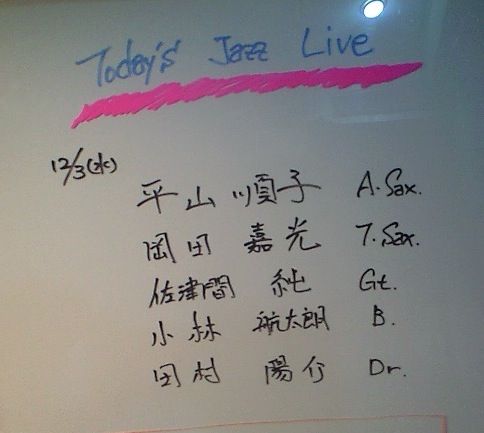 Today's Jazz Live
12/3(水)
平山 順子 A.Sax.
岡田 嘉光 T.Sax.
佐津間 純 Gt.
小林 航太朗 B.
田村 陽介 Dr.